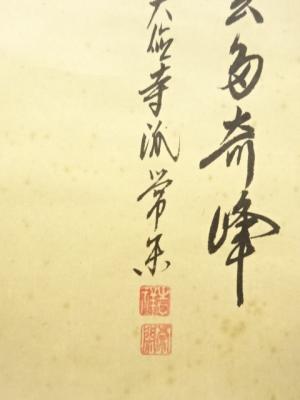 云多奇峰
大徳寺派常楽